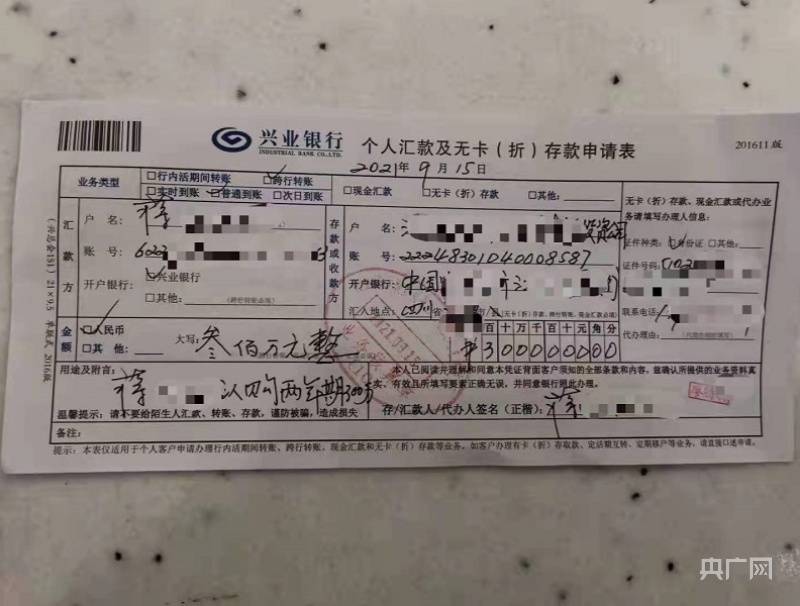 兴业银行 个人汇款及无卡（折）存款申请表 201611版
INDUSTRIAL BANK CO.,LTD.
2021年9月15日
业务类型 □行内活期间转账 ☑跨行转账 □现金汇款 □无卡（折）存款 □其他：
□实时到账 ☑普通到账 □次日到账
无卡（折）存款、现金汇款或代办业务请填写办理人信息：
汇款方 户 名：蒋
账 号：622
开户银行：☑兴业银行
□其他：（跨行转账必填）
存款或收款方 户 名： 投资公司
账 号：22248301040008587
开户银行：中国
汇入地点：四川省 （无卡（折）存款、跨行转账、现金汇款必填）
证件种类：☑身份证 □其他：
证件号码：
联系电话：
代办理由：
金额 ☑人民币
□其 他：
大写：叁佰万元整
百十万千百十元角分
¥300000000
用途及附言：
蒋 认购两年期300万
本人已阅读并理解和同意本凭证背面客户须知的全部条款和内容，兹确认所提供的业务资料真实、有效且所填写要素正确无误，并同意银行照此办理。
温馨提示：请不要给陌生人汇款、转账、存款，谨防被骗，造成损失
存/汇款人/代办人签名（正楷）：蒋
备注：
提示：本表仅适用于个人客户申请办理行内活期间转账、跨行转账、现金汇款和无卡（折）存款等业务，如客户办理有卡（折）存取款、定活期互转、定期移户等业务，请直接口述申请。
央广网